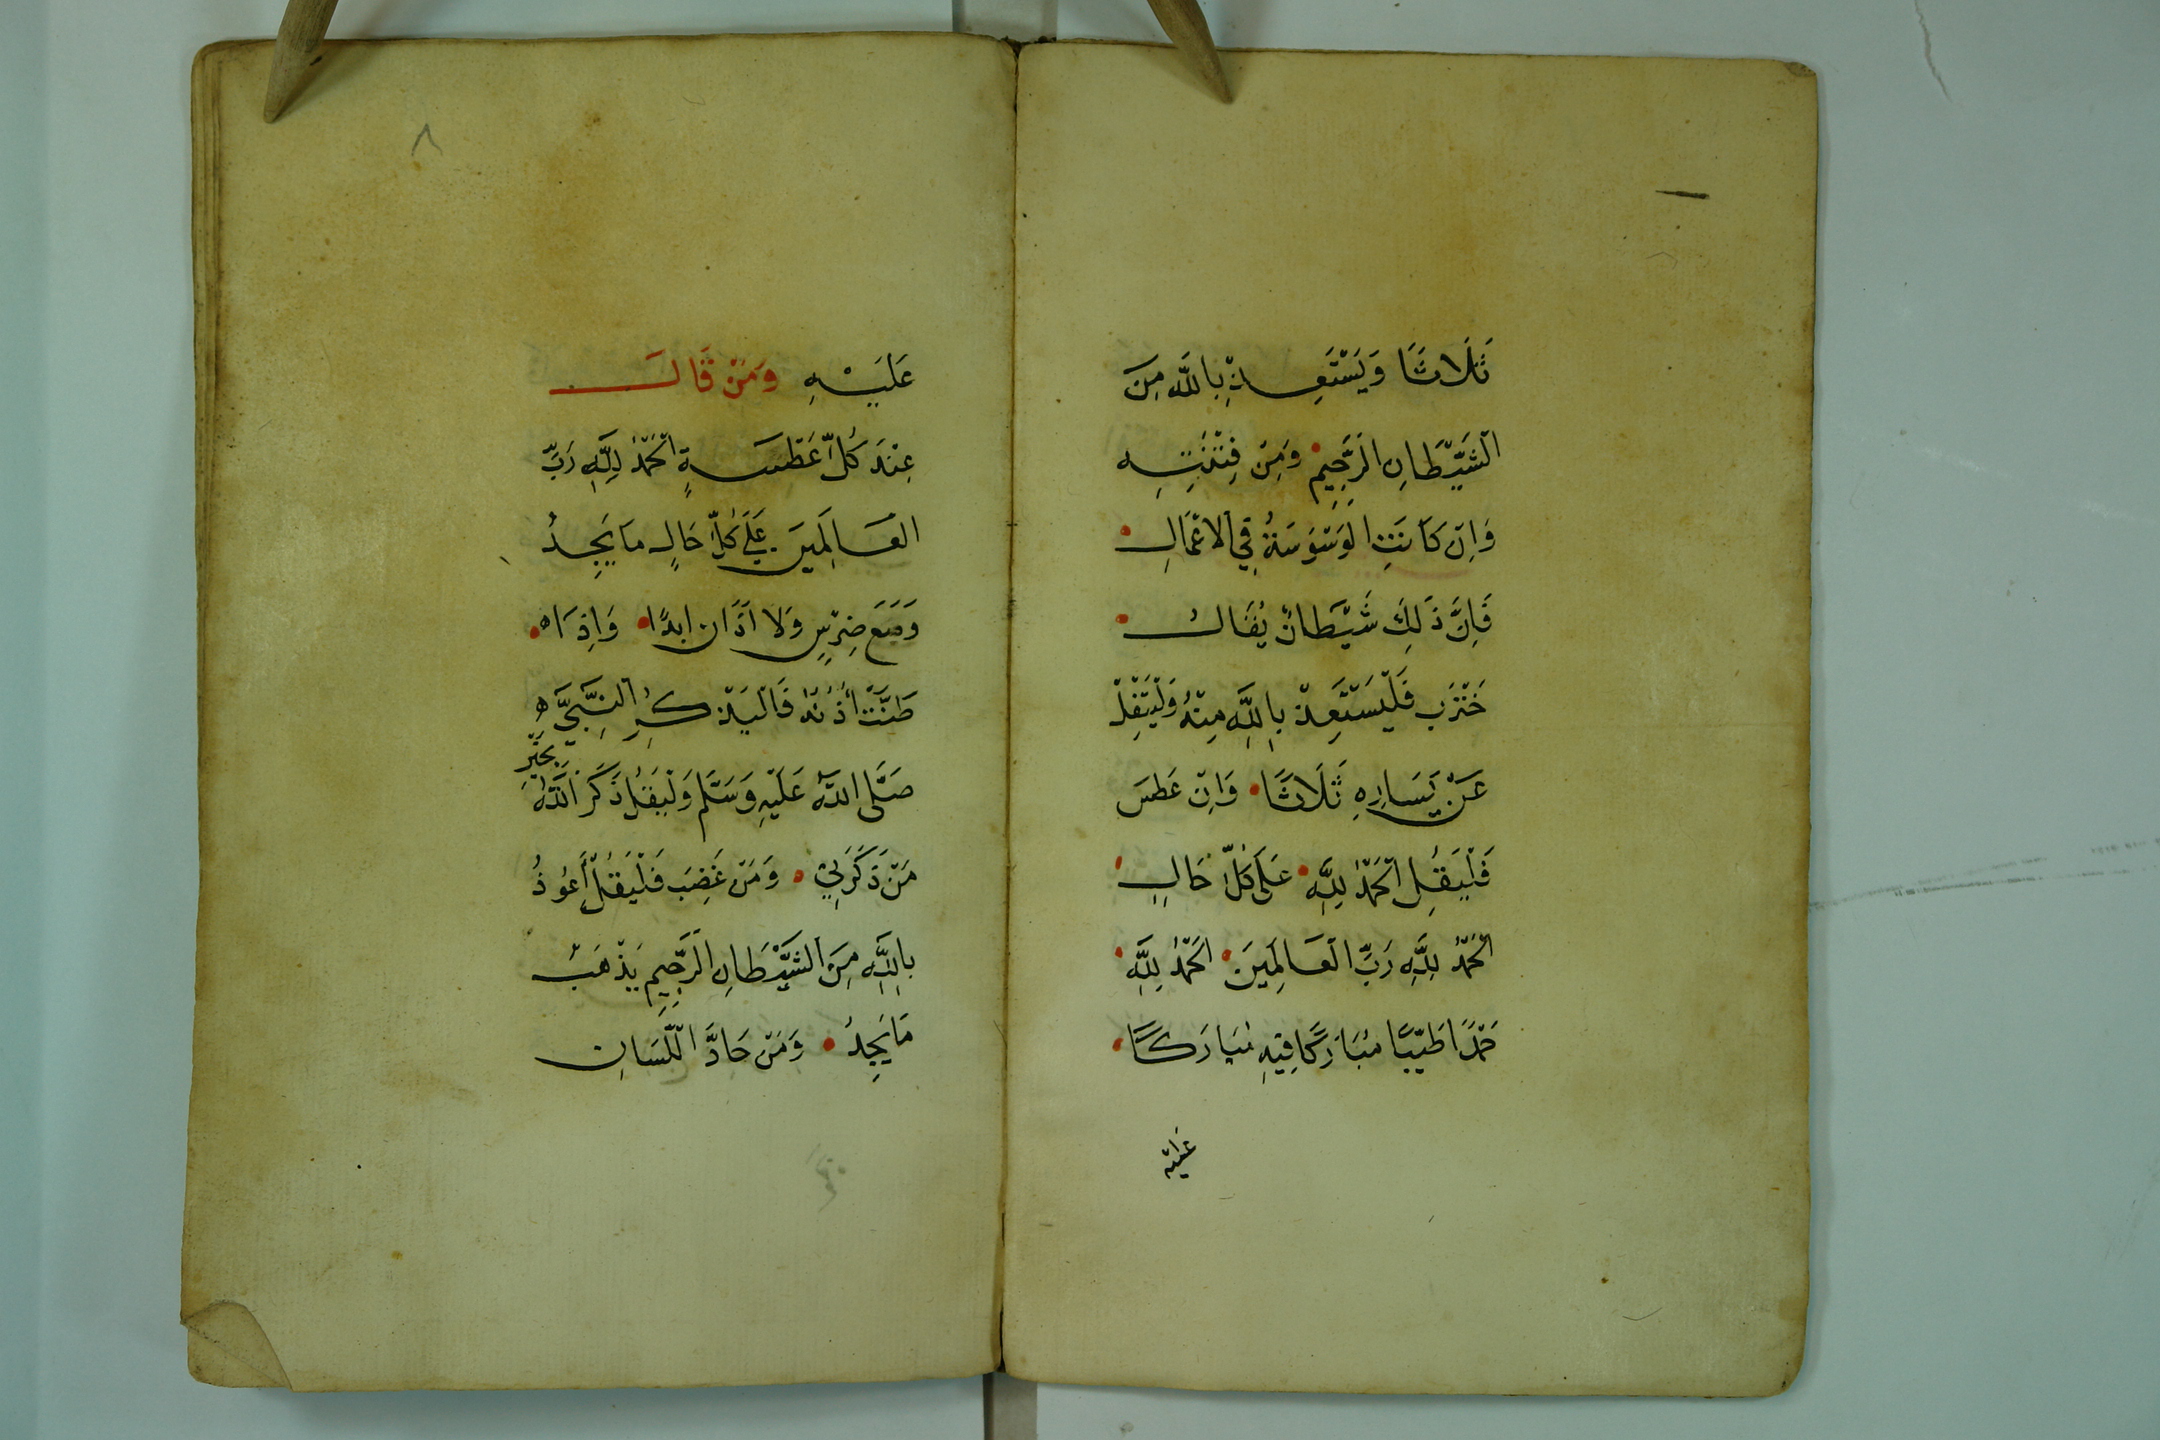 ثَلَاثًا وَيَسْتَعِذْ بِاللَّهِ مِنَ
الشَّيْطَانِ الرَّجِيمِ وَمِنْ فِتْنَتِهِ
وَاِنْ كَانَتِ الوَسْوَسَةُ فِي الاَعْمَالِ
فَاِنَّ ذَلِكَ شَيْطَانٌ يُقَالُ
خَنْزَب فَلْيَسْتَعِذْ بِاللَّهِ مِنْهُ وَلْيَتْفِلْ
عَنْ يَسَارِهِ ثَلَاثًا وَاِنْ عَطَسَ
فَلْيَقُلِ الْحَمْدُ لِلَّهِ عَلَى كُلِّ حَالٍ
الْحَمْدُ لِلَّهِ رَبِّ الْعَالَمِينَ الْحَمْدُ لِلَّهِ
حَمْدًا طَيِّبًا مُبَارَكًا فِيهِ مُبَارَكًا
عَلَيْهِ
عَلَيْهِ وَمَنْ قَالَ
عِنْدَ كُلِّ عَطْسَةٍ الْحَمْدُ لِلَّهِ رَبِّ
الْعَالَمِينَ عَلَى كُلِّ حَالٍ مَا يَجِدُ
وَجَعَ ضِرْسٍ وَلَا اَذَان ابَدًا وَاِذَا
طَنَّتْ أُذُنُهُ فَالْيَذْكُرِ النَّبِيَّ
صَلَّى اللَّهُ عَلَيْهِ وَسَلَّمَ وَلْيَقُلْ ذَكَرَ اللَّهُ بِخَيْرٍ
مَنْ ذَكَرَنِي وَمَنْ غَضِبَ فَلْيَقُلْ أَعُوذُ
بِاللَّهِ مِنَ الشَّيْطَانِ الرَّجِيمِ يَذْهَبُ
مَا يَجِدُ وَمَنْ حَادَّ اللِّسَانِ